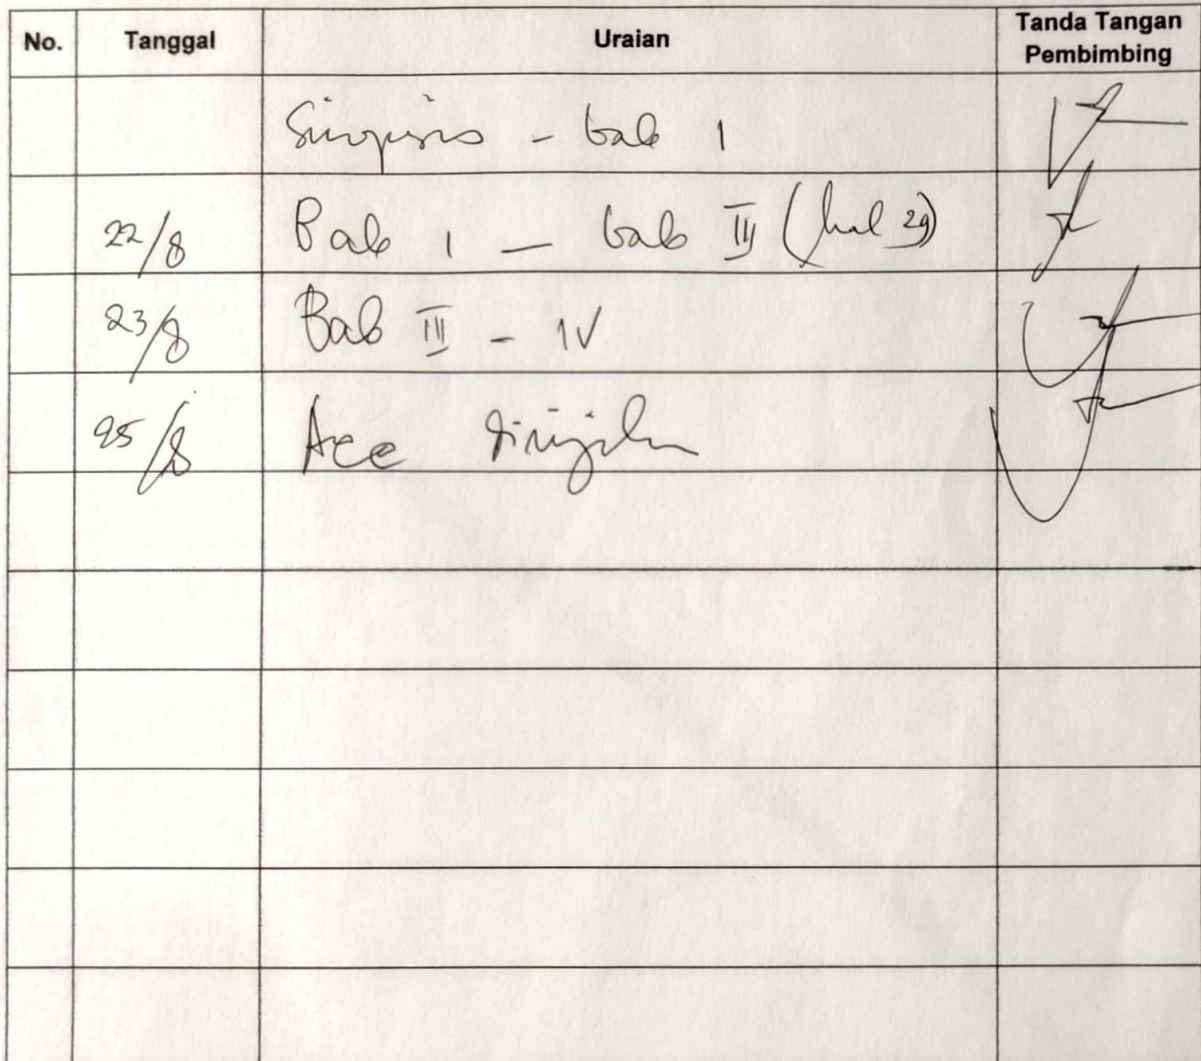 No. Tanggal Uraian Tanda Tangan Pembimbing
Sinopsis - bab 1
22/8 Bab 1 - bab III (hal 29)
23/8 Bab III - IV
25/8 Acc